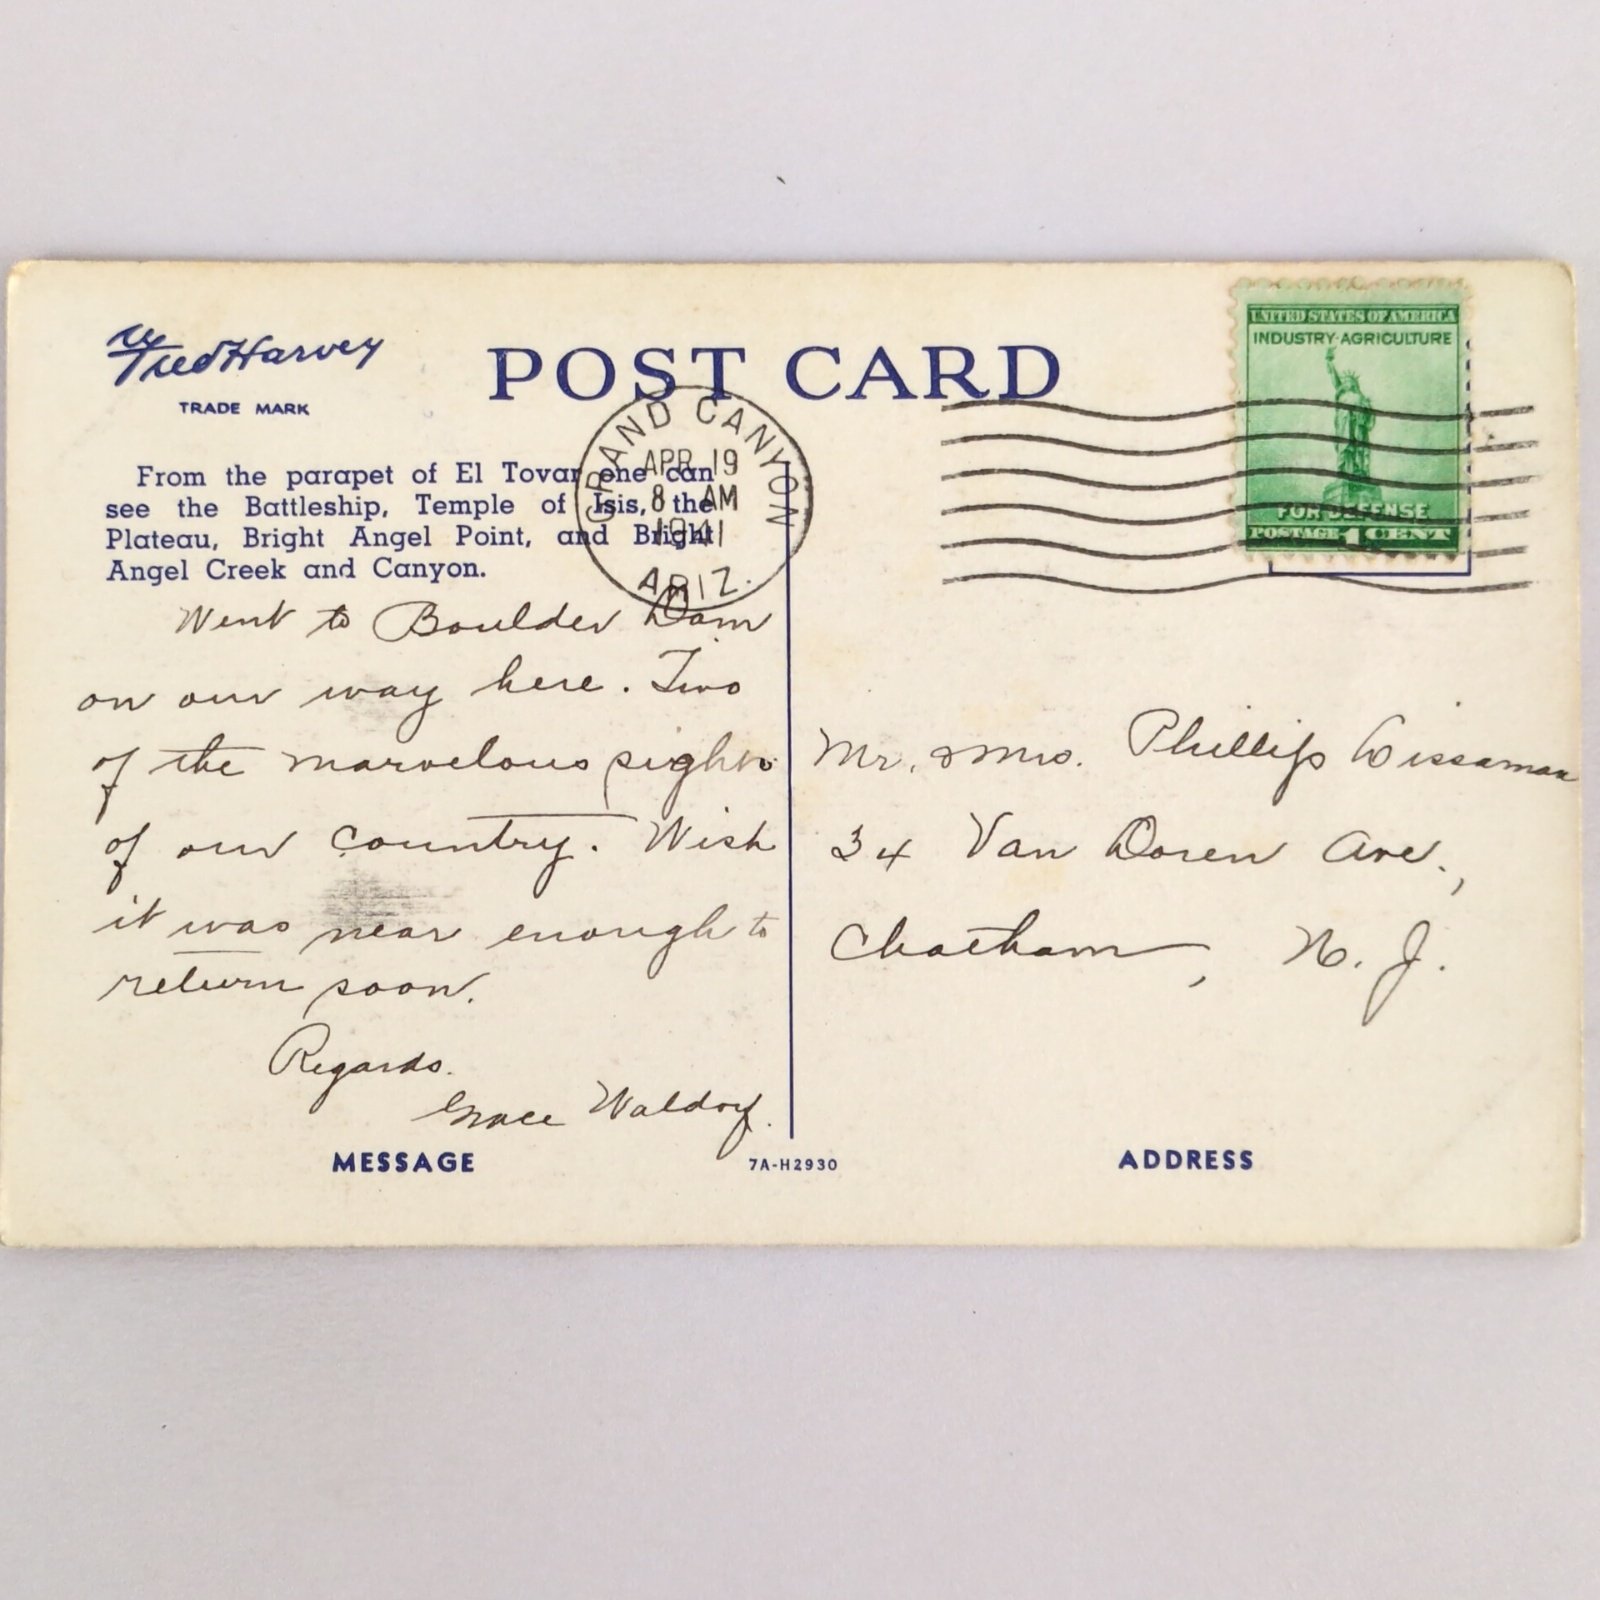 Fred Harvey
TRADE MARK
POST CARD
From the parapet of El Tovar one can
see the Battleship, Temple of Isis, the
Plateau, Bright Angel Point, and Bright
Angel Creek and Canyon.
GRAND CANYON
APR 19
8 AM
1941
ARIZ.
UNITED STATES OF AMERICA
INDUSTRY·AGRICULTURE
FOR DEFENSE
POSTAGE 1 CENT
Went to Boulder Dam
on our way here. Two
of the marvelous sights
of our country. Wish
it was near enough to
return soon.
Regards.
Grace Waldorf.
Mr. & Mrs. Phillip
34 Van Doren Ave.,
Chatham, N. J.
MESSAGE
7A-H2930
ADDRESS